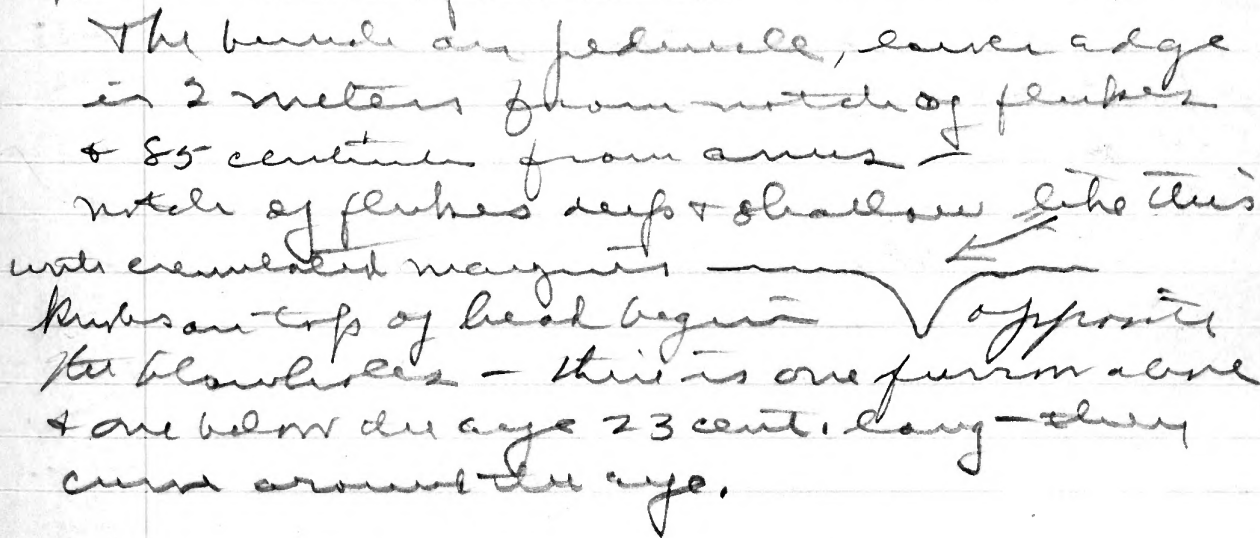 The bunch on peduncle, lower edge
is 2 meters from notch of flukes
& 85 centim from anus —
notch of flukes deep & shallow like this
with crenulated margins
Knobs on top of head begin opposite
the blowholes — there is one furrow above
& one below the eye 23 cent. long — they
curve around the eye.